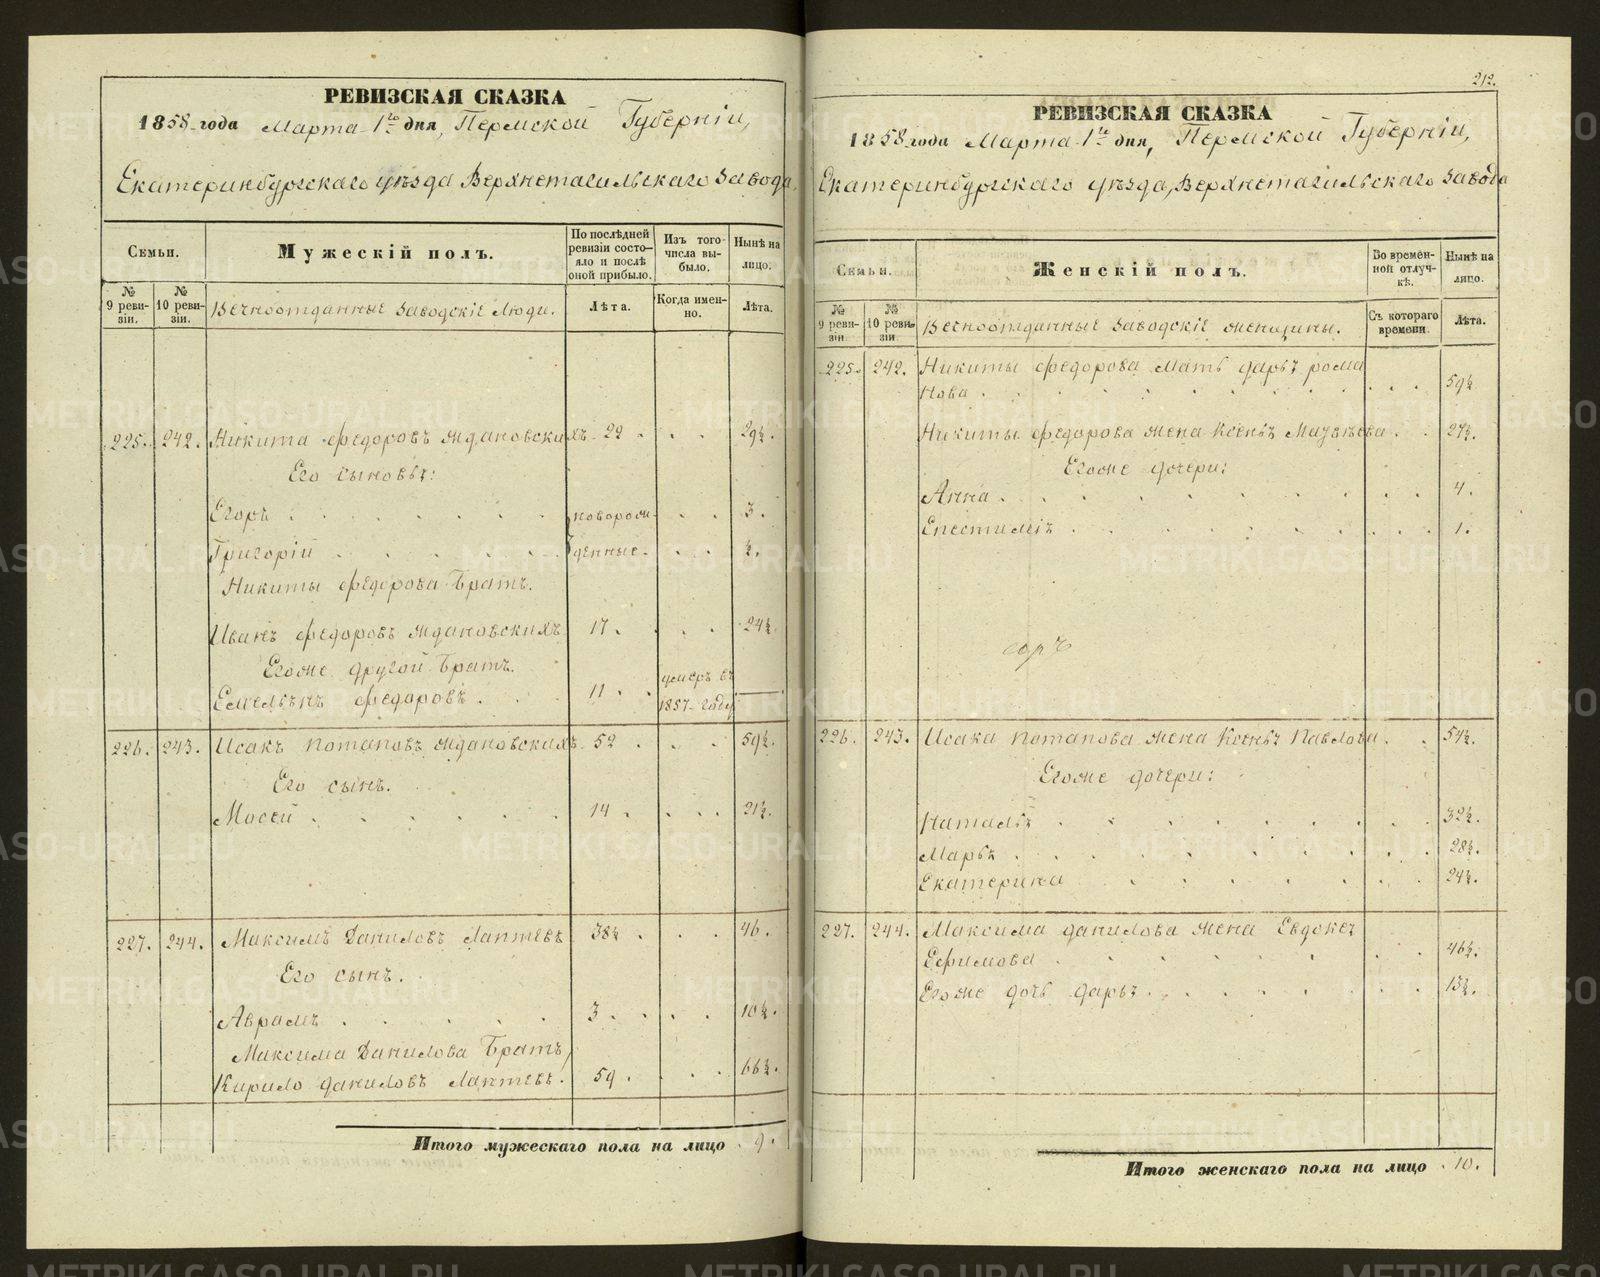 РЕВИЗСКАЯ СКАЗКА
1858 года Марта 1го дня, Пермской Губерніи,
Екатеринбургскаго уѣзда Верхнетагильскаго завода
Семьи.
Мужескій полъ.
По послѣдней ревизіи состояло и послѣ оной прибыло.
Изъ того числа выбыло.
Нынѣ на лицо.
№ 9 ревизіи.
№ 10 ревизіи.
Вечноотданные заводскіе люди.
Лѣта.
Когда именно.
Лѣта.
225. 242. Никита Федоровъ Ждановскихъ 22 . . . 29½.
Его сыновья:
Егоръ . . . . . . новорож- . . 3.
Григорій . . . . . денные . . . ½.
Никиты Федорова Братъ.
Иванъ Федоровъ Ждановскихъ 17 . . . 24½.
Егоже другой Братъ.
Емельянъ Федоровъ . . 11 . умеръ въ 1857 году —
226. 243. Исакъ Потаповъ Ждановскихъ 52 . . . 59½.
Его сынъ.
Мосей . . . . . . 14 . . . 21½.
227. 244. Максимъ Даниловъ Лаптевъ 38½ . . . 46.
Его сынъ.
Аврамъ . . . . . 3 . . . 10½.
Максима Данилова Братъ,
Кирило Даниловъ Лаптевъ. 59 . . . 66½.
Итого мужескаго пола на лицо . 9.
212.
РЕВИЗСКАЯ СКАЗКА
1858 года Марта 1го дня, Пермской Губерніи,
Екатеринбургскаго уѣзда, Верхнетагильскаго завода
Семьи.
Женскій полъ.
Во временной отлучкѣ.
Нынѣ на лицо.
№ 9 ревизіи
№ 10 ревизіи
Вечноотданные заводскіе женщины.
Съ котораго времени
Лѣта.
225. 242. Никиты Федорова Мать Дарья Рома
нова . . . . . . . . . . 59½
Никиты Федорова жена Ксенья Матвѣева . . 27½.
Егоже дочери:
Анна . . . . . . . . . . 4.
Епестимія . . . . . . . . . 1.
226. 243. Исака Потапова жена Ксенья Павлова . . 54½.
Егоже дочери:
Наталья . . . . . . . . . 32½.
Марья . . . . . . . . . . 28½.
Екатерина . . . . . . . . 24½.
227. 244. Максима Данилова жена Евдокея
Ефимова . . . . . . . . . 46½.
Егоже дочь Дарья . . . . . . . 13½.
Итого женскаго пола на лицо . 10.
METRIKI.GASO-URAL.RU